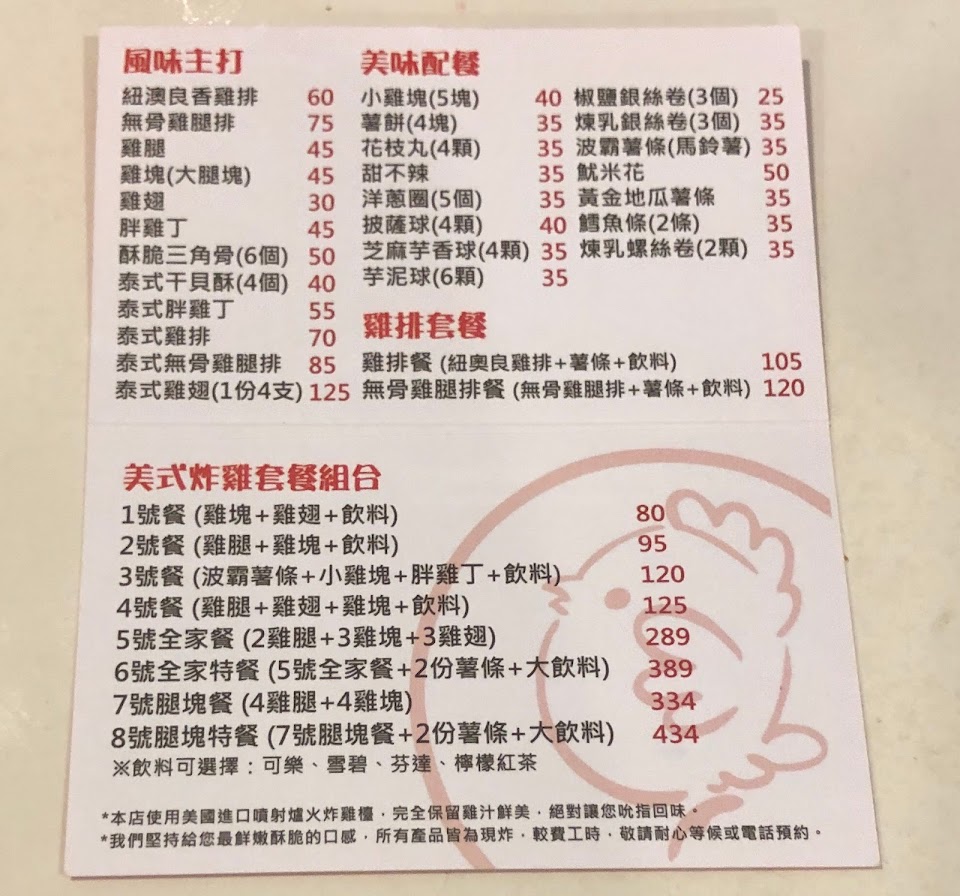 風味主打
紐澳良香雞排 60
無骨雞腿排 75
雞腿 45
雞塊(大腿塊) 45
雞翅 30
胖雞丁 45
酥脆三角骨(6個) 50
泰式干貝酥(4個) 40
泰式胖雞丁 55
泰式雞排 70
泰式無骨雞腿排 85
泰式雞翅(1份4支) 125
美味配餐
小雞塊(5塊) 40
薯餅(4塊) 35
花枝丸(4顆) 35
甜不辣 35
洋蔥圈(5個) 35
披薩球(4顆) 40
芝麻芋香球(4顆) 35
芋泥球(6顆) 35
椒鹽銀絲卷(3個) 25
煉乳銀絲卷(3個) 35
波霸薯條(馬鈴薯) 35
魷米花 50
黃金地瓜薯條 35
鱈魚條(2條) 35
煉乳螺絲卷(2顆) 35
雞排套餐
雞排餐 (紐奧良雞排+薯條+飲料) 105
無骨雞腿排餐 (無骨雞腿排+薯條+飲料) 120
美式炸雞套餐組合
1號餐 (雞塊+雞翅+飲料) 80
2號餐 (雞腿+雞塊+飲料) 95
3號餐 (波霸薯條+小雞塊+胖雞丁+飲料) 120
4號餐 (雞腿+雞翅+雞塊+飲料) 125
5號全家餐 (2雞腿+3雞塊+3雞翅) 289
6號全家特餐 (5號全家餐+2份薯條+大飲料) 389
7號腿塊餐 (4雞腿+4雞塊) 334
8號腿塊特餐 (7號腿塊餐+2份薯條+大飲料) 434
※飲料可選擇：可樂、雪碧、芬達、檸檬紅茶
*本店使用美國進口噴射爐火炸雞檯，完全保留雞汁鮮美，絕對讓您吮指回味。
*我們堅持給您最鮮嫩酥脆的口感，所有產品皆為現炸，較費工時，敬請耐心等候或電話預約。